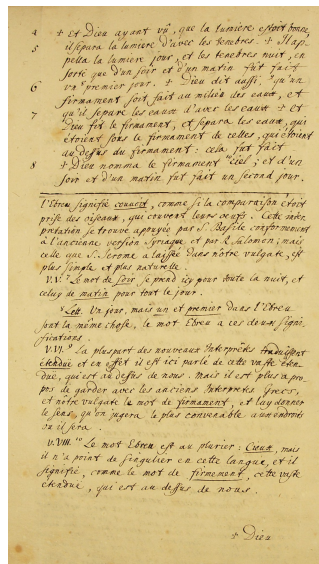 4 ⁂ Et Dieu ayant vû, que la lumiere estoit bonne,
5 il sépara la lumiere d'avec les tenebres. ⁂ Il ap-
pella la lumiere jour, et les tenebres nuit, en
sorte que d'un soir et d'un matin fut fait
6 un premier jour. ⁂ Dieu dit aussi, qu'un
firmament soit fait au milieu des eaux, et
7 qu'il separe les eaux d'avec les eaux ⁂ Et
Dieu fit le firmament, et separa les eaux, qui
étoient sous le firmament de celles, qui étoient
au dessus du firmament: cela fut fait
8 ⁂ Dieu nomma le firmament ciel; et d'un
soir et d'un matin fut fait un second jour.
l'Ebreu signifie couvoit, comme si la comparaison étoit
prise des oiseaux, qui couvent leurs œufs. Cette inter-
pretation se trouve apuyée par S. Basile, conformement
à l'ancienne version Syriaque, et par R. Salomon; mais
celle que S. Jerome a laissée dans nôtre vulgate, est
plus simple et plus naturelle.
V.V. Le mot de soir se prend icy pour toute la nuit, et
celuy de matin pour tout le jour.
Lett. Un jour, mais un et premier dans l'Ebreu
sont la même chose, le mot Ebreu a ces deux signi-
fications.
V.VI. La pluspart des nouveaux Interprêtes traduisent
étendue et en effet il est ici parlé de cette vaste éten-
due, qui est au dessus de nous. Mais il est plus à pro-
pos de garder avec les anciens Interprets Grecs,
et nôtre vulgate le mot de firmament, et luy donner
le sens, qu'on jugera le plus convenable aux endroits
ou il sera.
V.VIII. 10 Le mot Ebreu est au plurier: Cieux, mais
il n'a point de singulier en cette langue, et il
signifie, comme le mot de firmement, cette vaste
étendue, qui est au dessus de nous.
⁂ Dieu